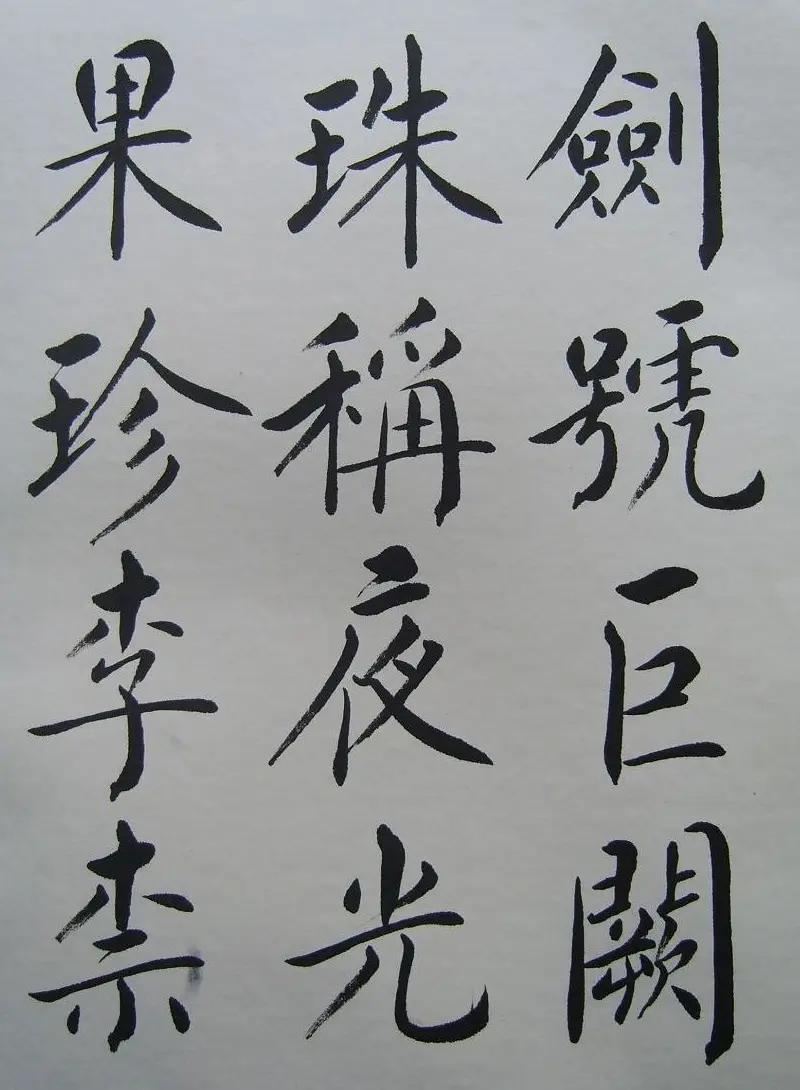 劍號巨闕
珠稱夜光
果珍李柰